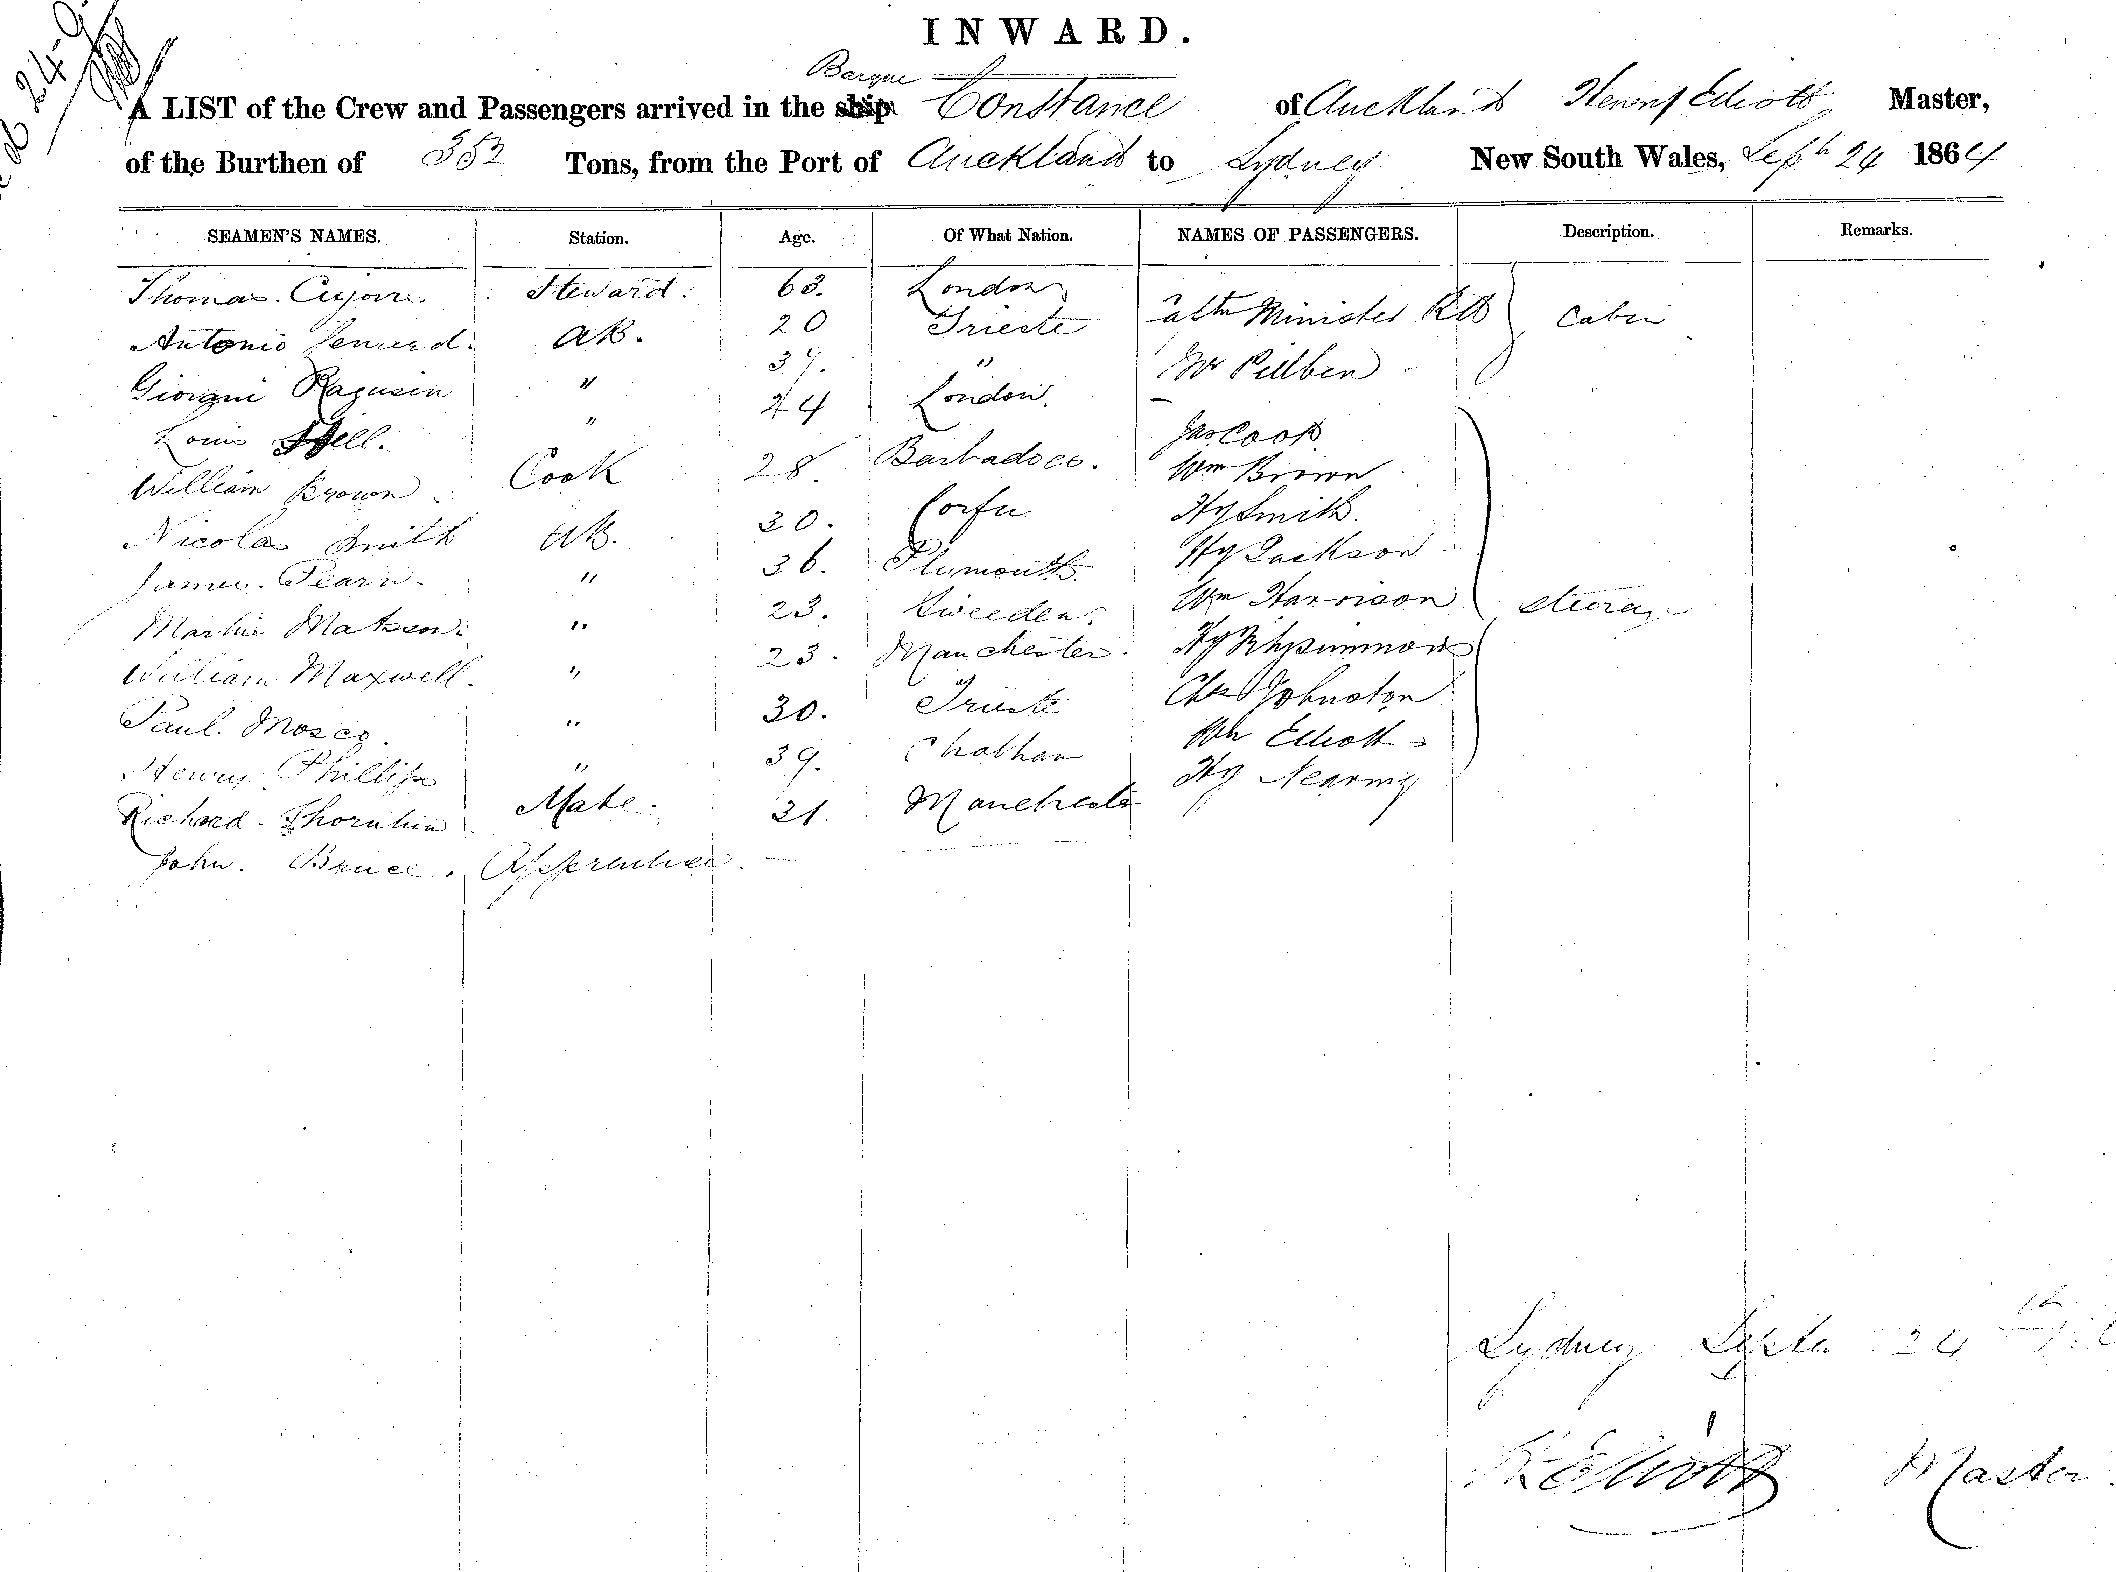 INWARD.
Barque
A LIST of the Crew and Passengers arrived in the ship Constance of Auckland Henry Elliott Master,
of the Burthen of 352 Tons, from the Port of Auckland to Sydney New South Wales, Septr 24 1864
SEAMEN'S NAMES. Station. Age. Of What Nation. NAMES OF PASSENGERS. Description. Remarks.
Thomas Steward. 63. London
Antonio AB. 20 Trieste Minister Cabin
Ragusin " 39. " Mr
Louis " 24 London.
Jas Cook
William Brown Cook 28. Barbadoes. Wm Brown
Nicola Smith AB. 30. Corfu Hy Smith.
James Pearn. " 36. Plymouth. Hy Jackson
Martin Matson. " 23. Sweeden. Wm Harrison steerage
William Maxwell. " 23. Manchester. Hy Fitzsimmons
Paul. Mosco. " 30. Trieste Chas Johnston
Henry Phillips " 39. Chatham Wm Elliott
Richard Mate. 31. Manchester Hy
John. Bruce. Apprentice
Sydney Septr 24th
Hy Elliott Master